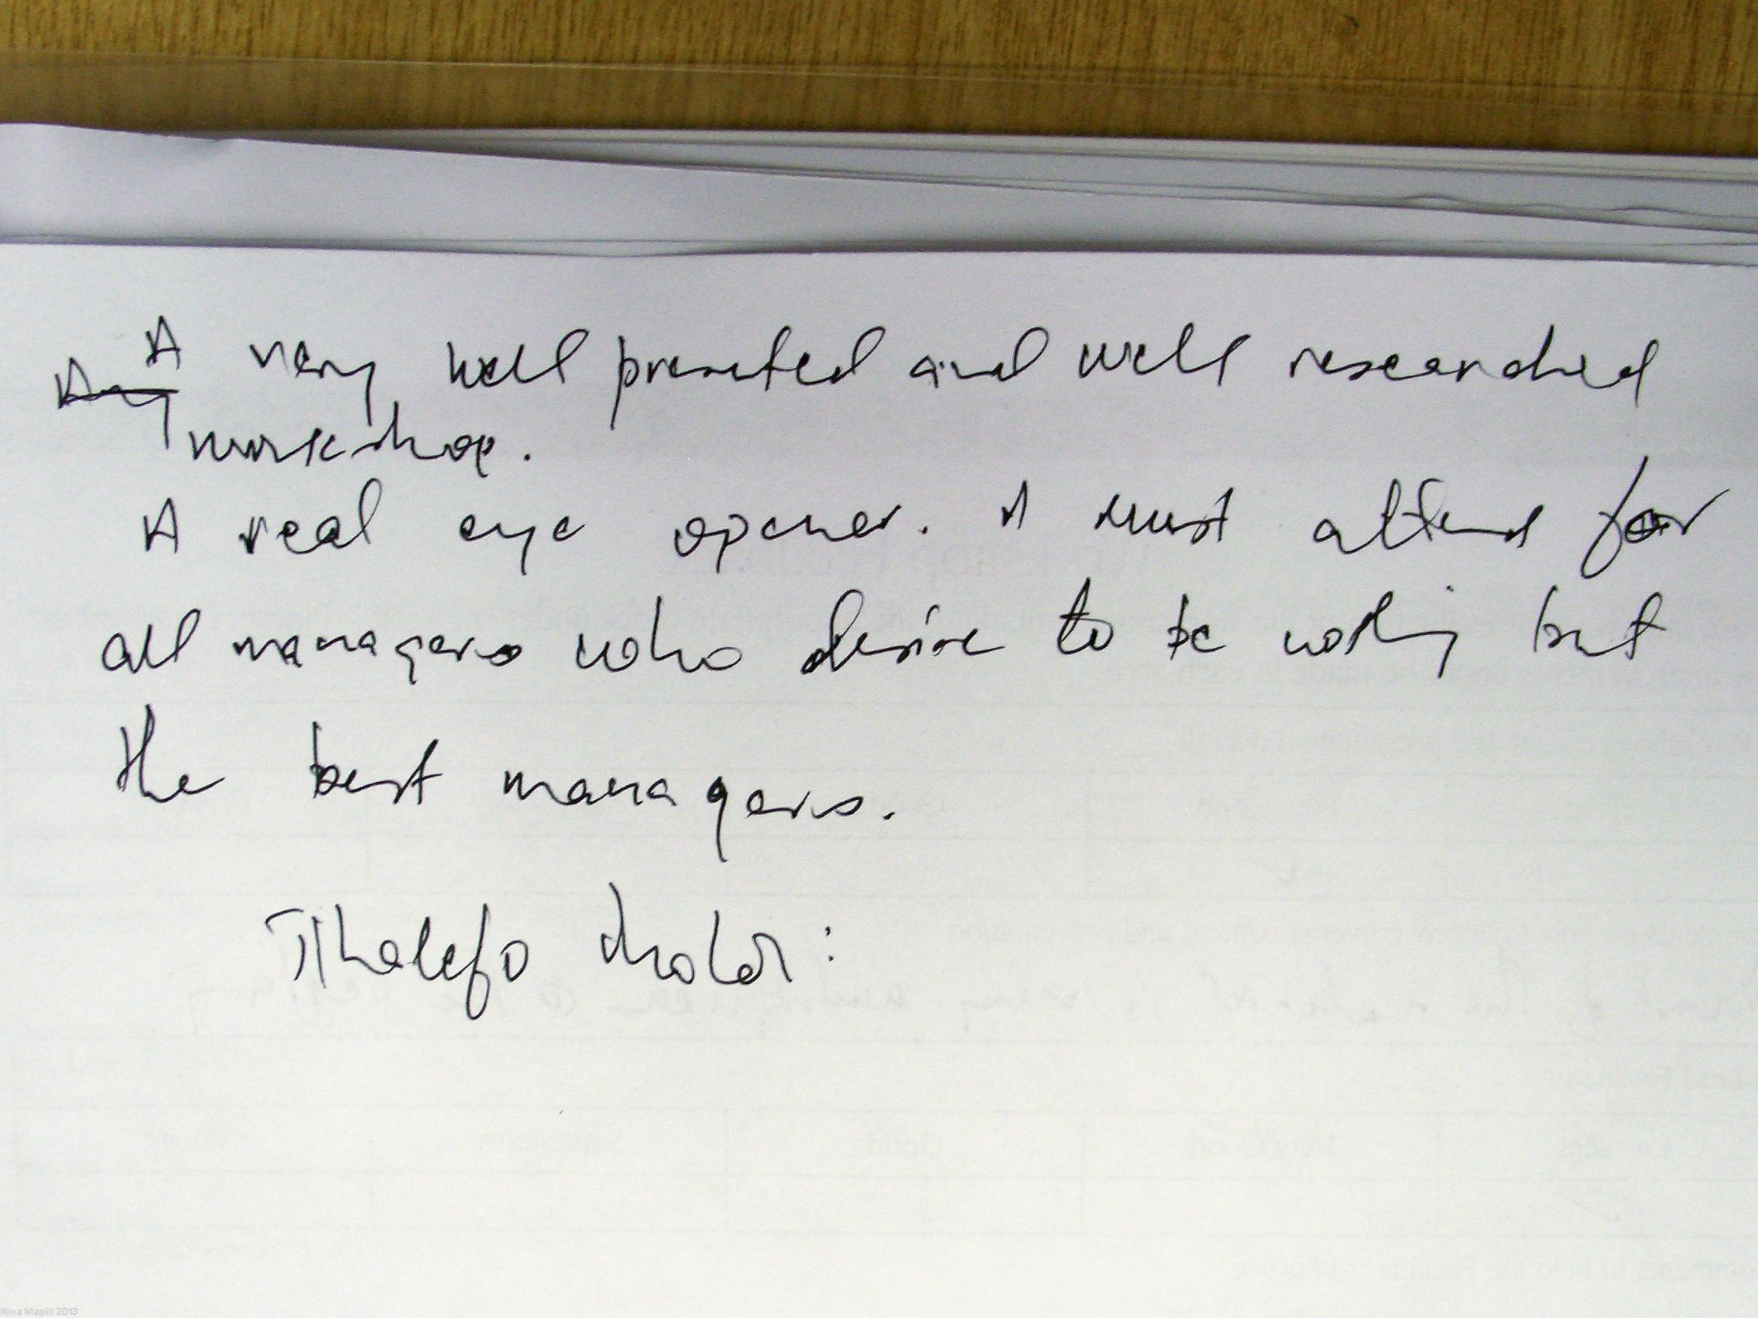 A very well presented and well researched
workshop.
A real eye opener. A must attend for
all managers who desire to be nothing but
the best managers.
Nina Mapili 2013